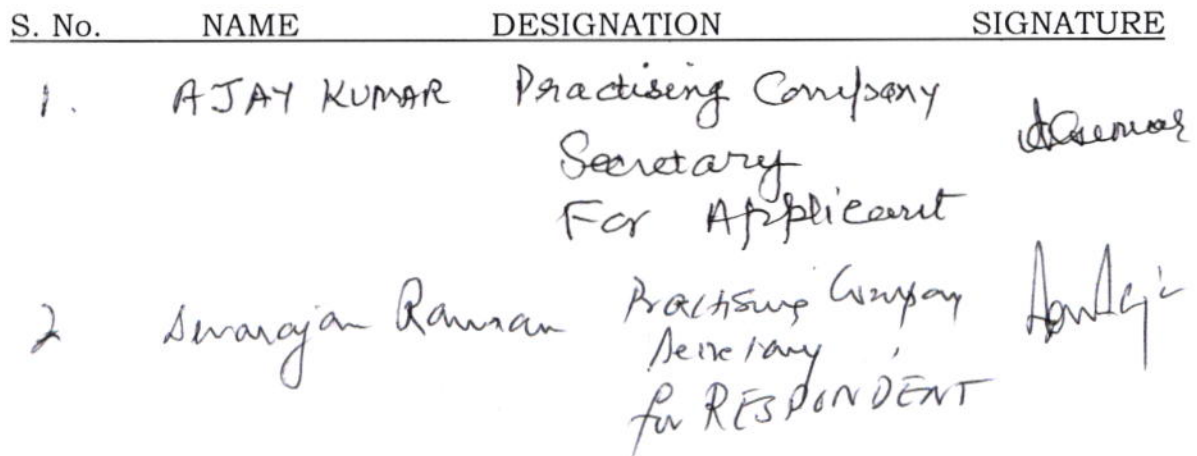 S. No. NAME DESIGNATION SIGNATURE
1. AJAY KUMAR Practising Company
Secretary
For Applicant
2 Raman Practising Company
Secretary
for RESPONDENT